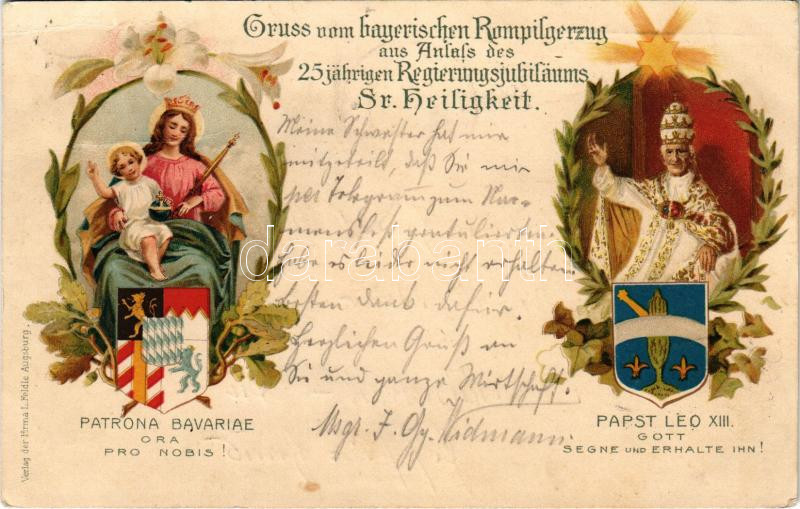 Gruss vom bayerischen Rompilgerzug
aus Anlass des
25jährigen Regierungsjubiläums
Sr. Heiligkeit.
Meine Schwester hat mir
mitgeteilt, daß Sie mir
per Telegramm zum Na-
mensfest gratulierten.
Habe es leider nicht erhalten
besten Dank dafür.
Herzlichen Gruß an
Sie und ganze Wirtschaft.
Msgr. J. Gg. Widmann.
PATRONA BAVARIAE
ORA
PRO NOBIS!
PAPST LEO XIII.
GOTT
SEGNE UND ERHALTE IHN!
Verlag der Firma L. Feldle Augsburg.
darabanth